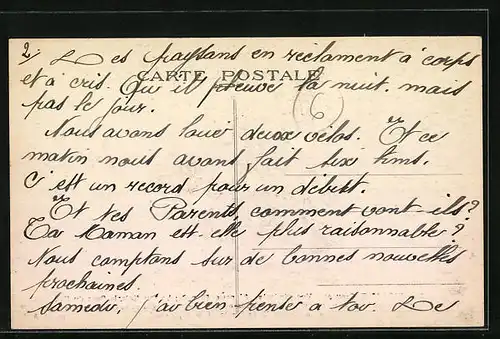 2. Les paysans en réclament à corps
et à cris. Qu'il pleuve la nuit. mais
CARTE POSTALE
pas le jour.
6
Nous avons loué deux vélos. Et ce
matin nous avons fait six kms.
C'est un record pour un début.
Et tes Parents, comment vont-ils?
Ta Maman est-elle plus raisonnable?
Nous comptons sur de bonnes nouvelles
prochaines.
Samedi, j'ai bien pensé à toi. Le